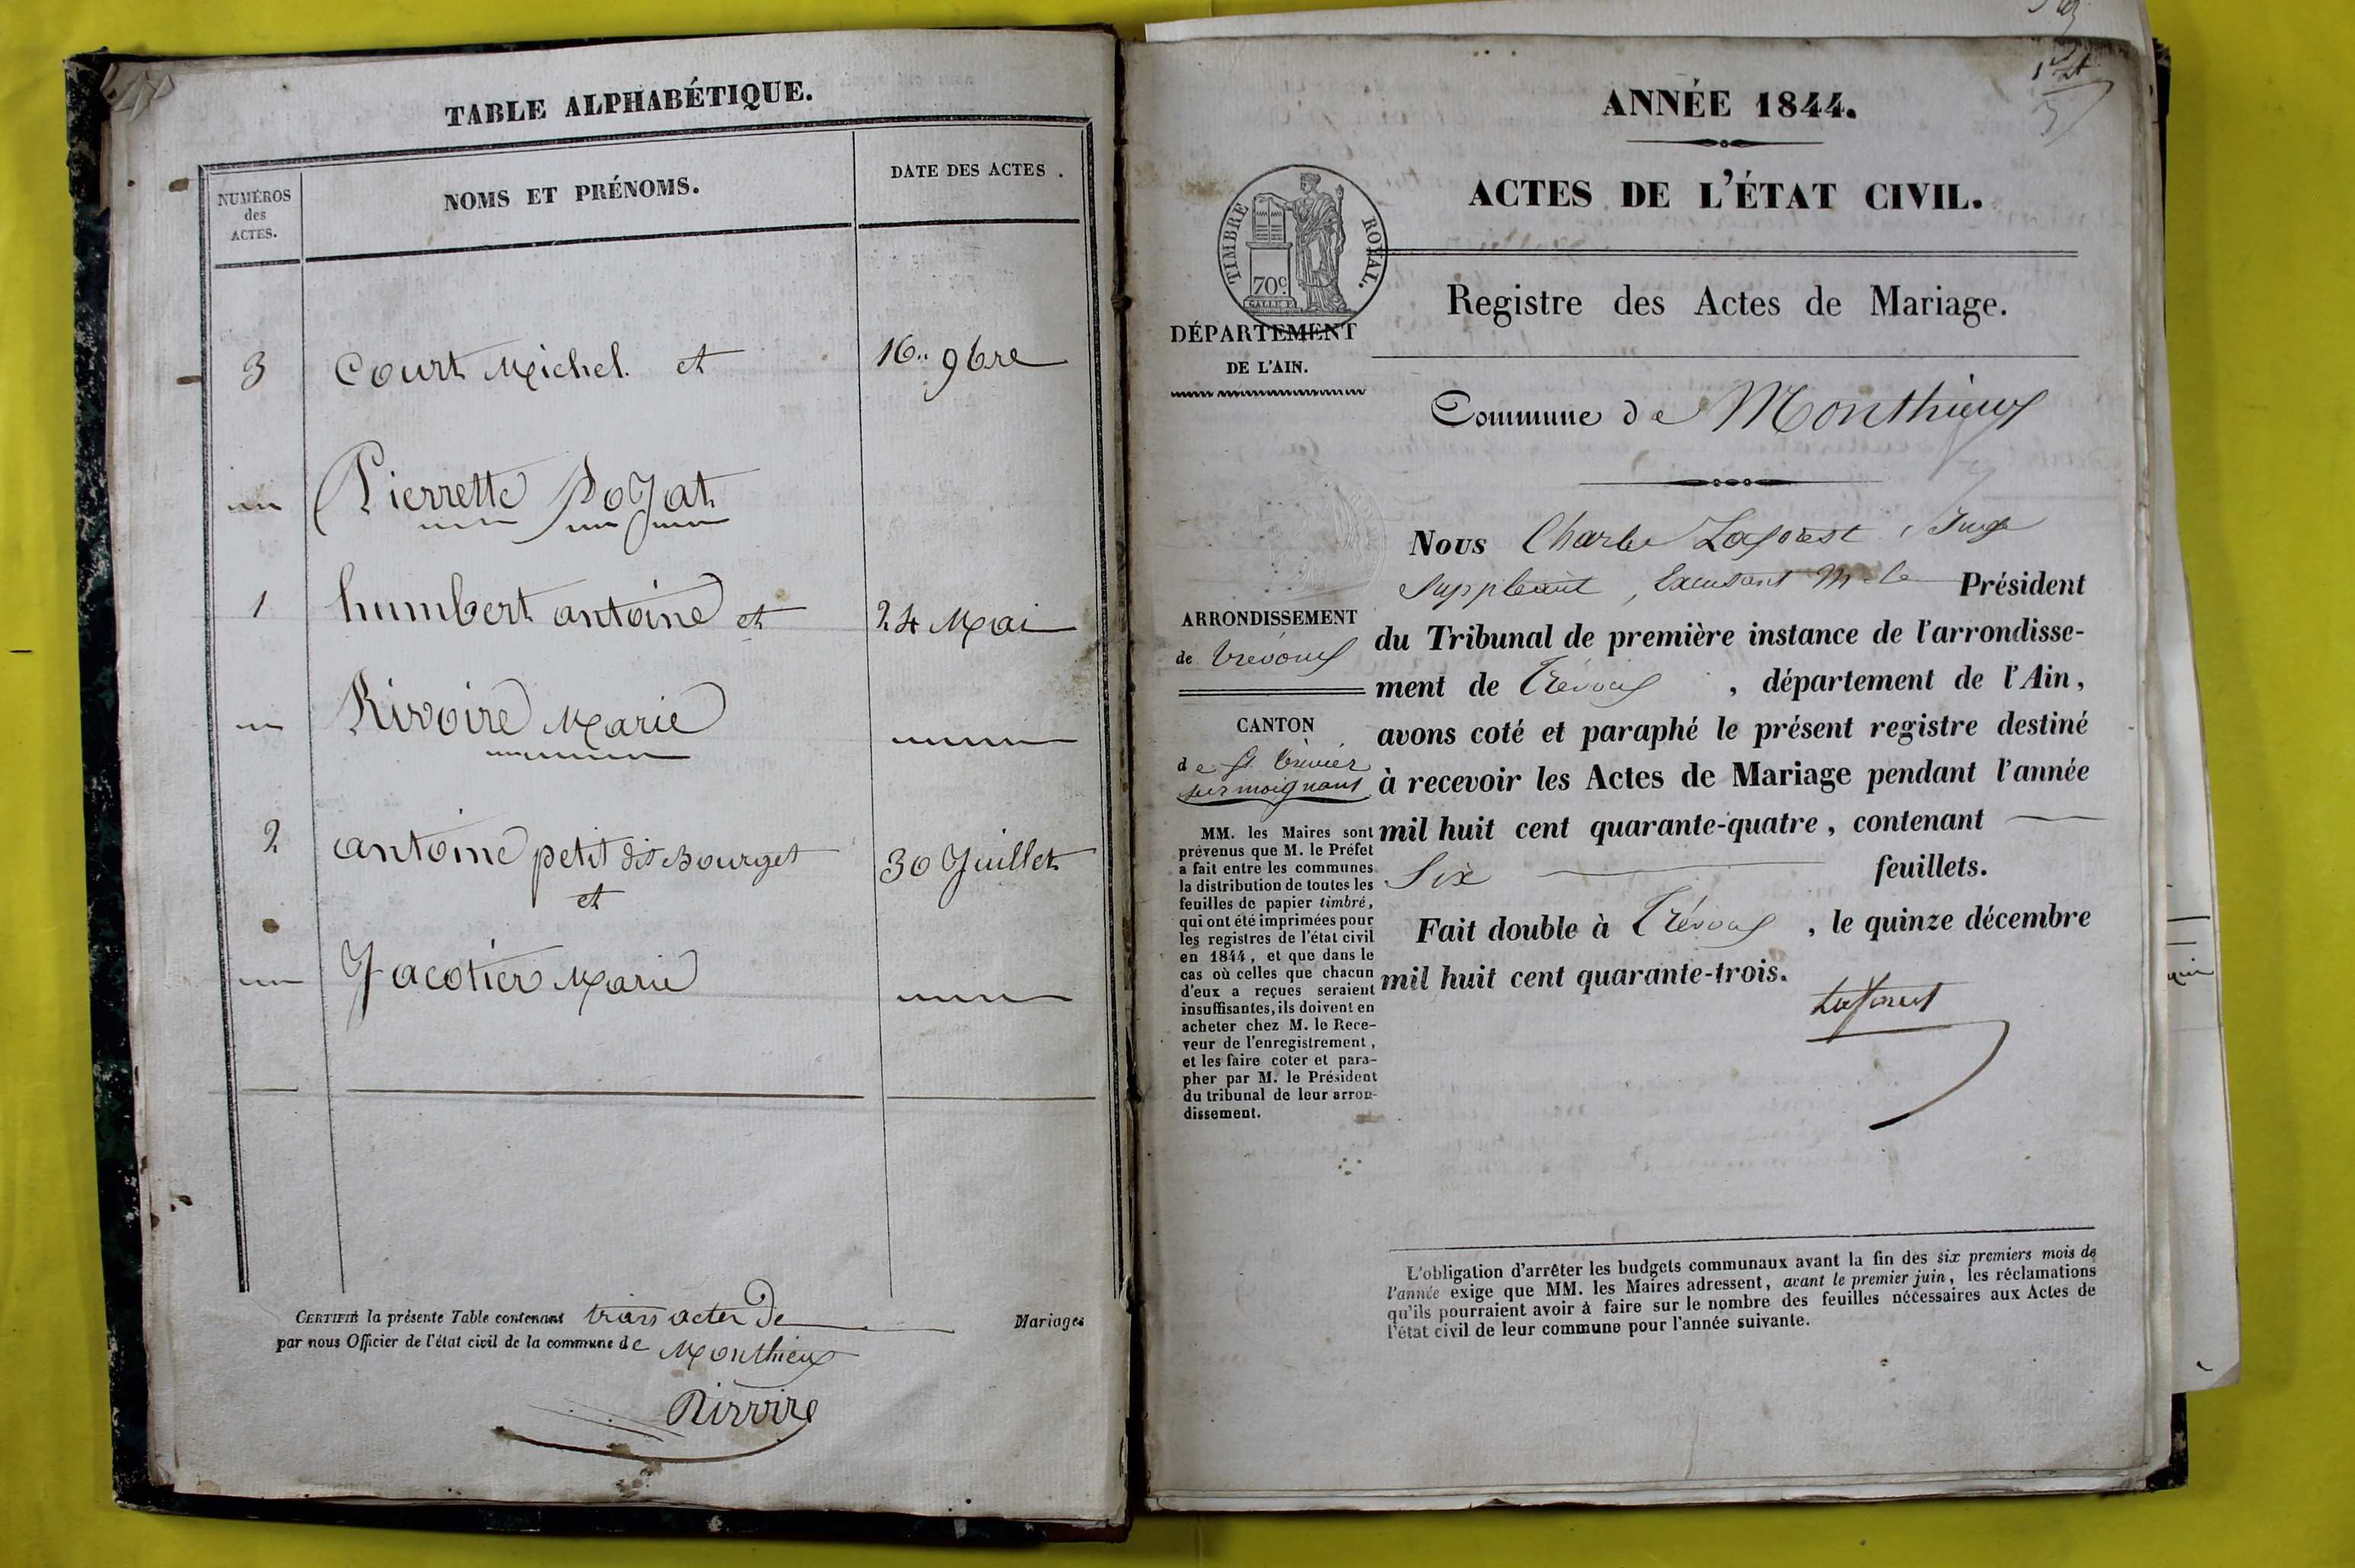 TABLE ALPHABÉTIQUE.
NUMÉROS
des
ACTES.
NOMS ET PRÉNOMS.
DATE DES ACTES .
3 Court Michel. et 16.. 9bre
Pierrette Pojat
1 humbert antoine et 24 Mai
Rivoire Marie
2 antoine petit dit Bourget 30 Juillet
et
Jacotier Marie
CERTIFIÉ la présente Table contenant trois actes De Mariages
par nous Officier de l'état civil de la commune de Monthieux
Rivoire
ANNÉE 1844.
ACTES DE L'ÉTAT CIVIL.
TIMBRE ROYAL.
70c.
GALLE F.
DÉPARTEMENT
DE L'AIN.
Registre des Actes de Mariage.
Commune de Monthieux
ARRONDISSEMENT
de Trévoux
CANTON
de St Trivier
sur moignans
MM. les Maires sont
prévenus que M. le Préfet
a fait entre les communes
la distribution de toutes les
feuilles de papier timbré,
qui ont été imprimées pour
les registres de l'état civil
en 1844, et que dans le
cas où celles que chacun
d'eux a reçues seraient
insuffisantes, ils doivent en
acheter chez M. le Rece-
veur de l'enregistrement,
et les faire coter et para-
pher par M. le Président
du tribunal de leur arron-
dissement.
Nous Charles Laforest, Juge
Suppléant, M. le Président
du Tribunal de première instance de l'arrondisse-
ment de Trévoux , département de l'Ain,
avons coté et paraphé le présent registre destiné
à recevoir les Actes de Mariage pendant l'année
mil huit cent quarante-quatre, contenant
Six feuillets.
Fait double à Trévoux , le quinze décembre
mil huit cent quarante-trois.
Laforest
L'obligation d'arrêter les budgets communaux avant la fin des six premiers mois de
l'année exige que MM. les Maires adressent, avant le premier juin, les réclamations
qu'ils pourraient avoir à faire sur le nombre des feuilles nécessaires aux Actes de
l'état civil de leur commune pour l'année suivante.